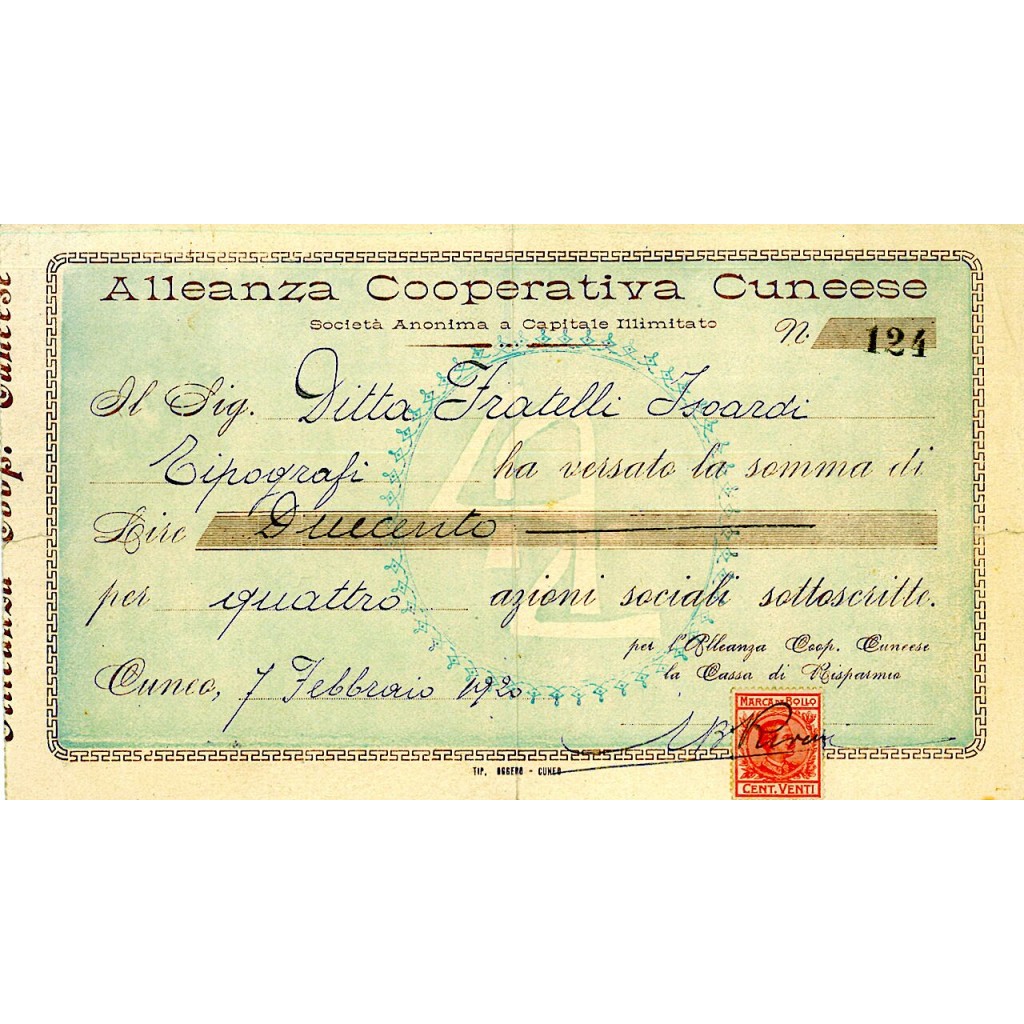 Alleanza Cooperativa Cuneese
Società Anonima a Capitale Illimitato
N. 124
Il Sig. Ditta Fratelli Isoardi
Tipografi ha versato la somma di
Lire Duecento
per quattro azioni sociali sottoscritte.
per l'Alleanza Coop. Cuneese
la Cassa di Risparmio
Cuneo, 7 Febbraio 1920
MARCA DA BOLLO
CENT. VENTI
TIP. OGGERO - CUNEO
Alleanza Coop. Cuneese